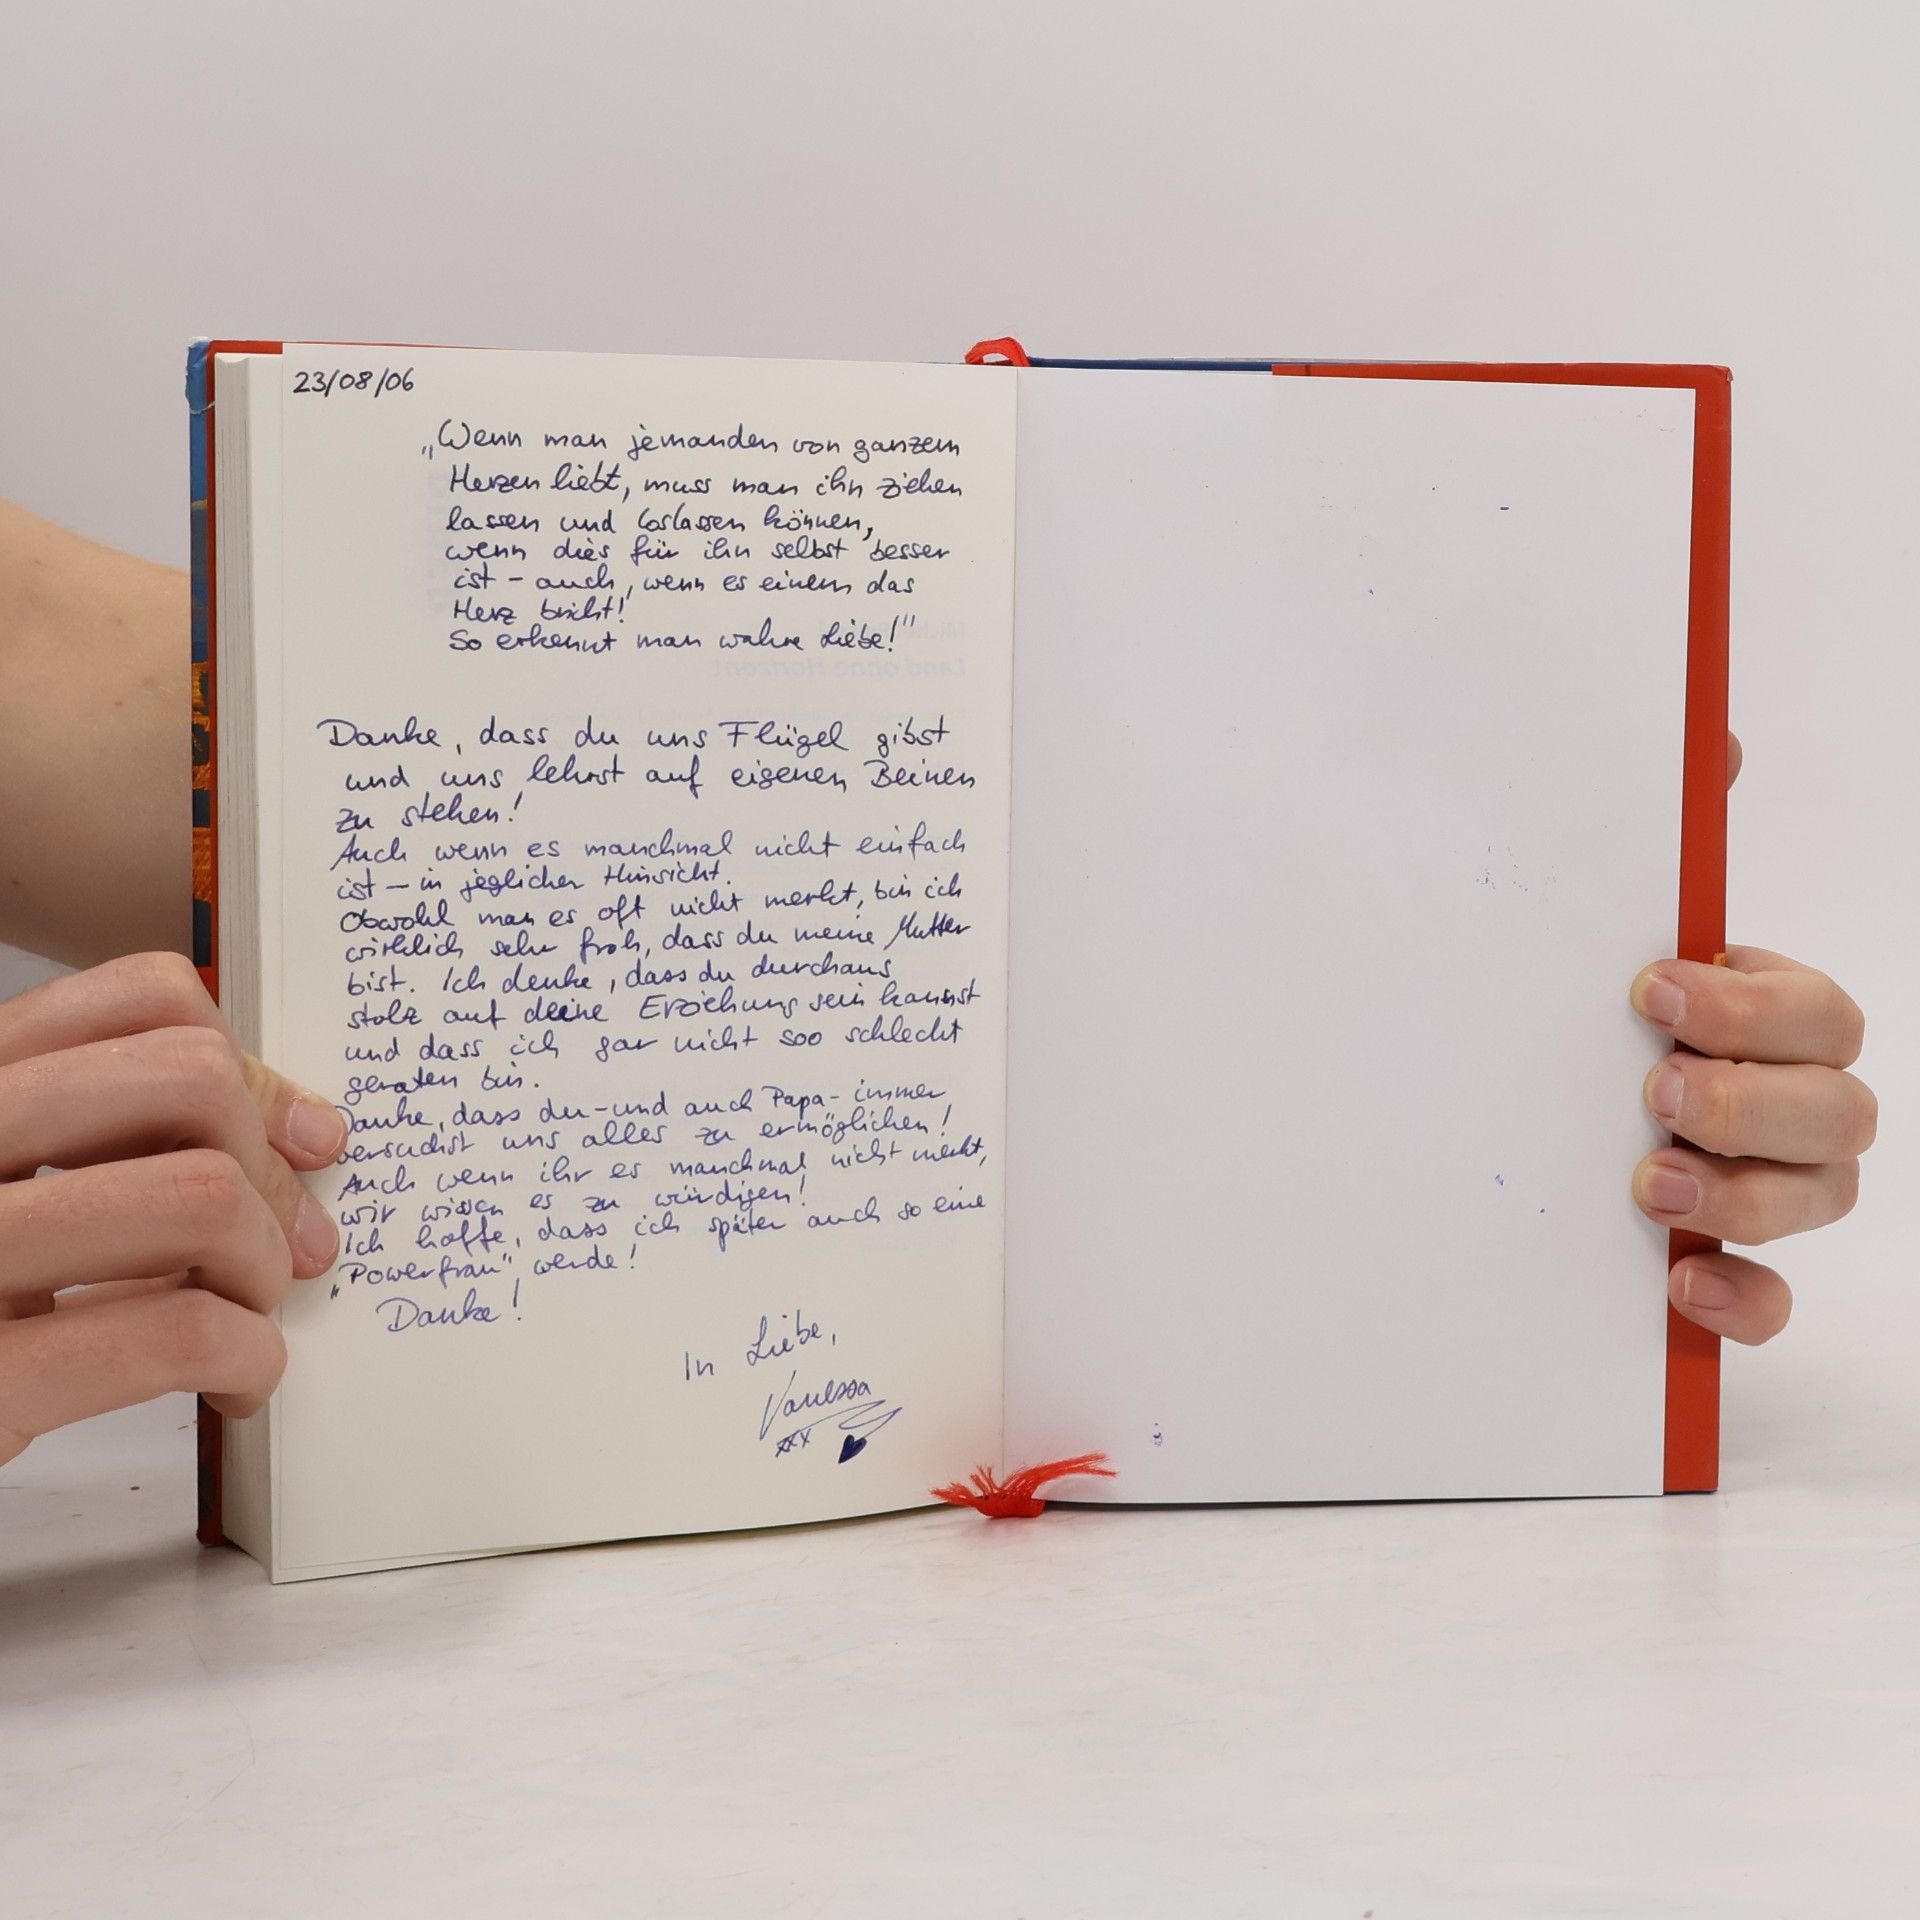 23/08/06
„Wenn man jemanden von ganzem
Herzen liebt, muss man ihn ziehen
lassen und loslassen können,
wenn dies für ihn selbst besser
ist – auch, wenn es einem das
Herz bricht!
So erkennt man wahre Liebe!"
Danke, dass du uns Flügel gibst
und uns lehrst auf eigenen Beinen
zu stehen!
Auch wenn es manchmal nicht einfach
ist – in jeglicher Hinsicht.
Obwohl man es oft nicht merkt, bin ich
wirklich sehr froh, dass du meine Mutter
bist. Ich denke, dass du durchaus
stolz auf deine Erziehung sein kannst
und dass ich gar nicht soo schlecht
geraten bin.
Danke, dass du – und auch Papa – immer
versuchst uns alles zu ermöglichen!
Auch wenn ihr es manchmal nicht merkt,
wir wissen es zu würdigen!
Ich hoffe, dass ich später auch so eine
„Powerfrau" werde!
Danke!
In Liebe,
Vanessa
xxx
Land ohne Horizont